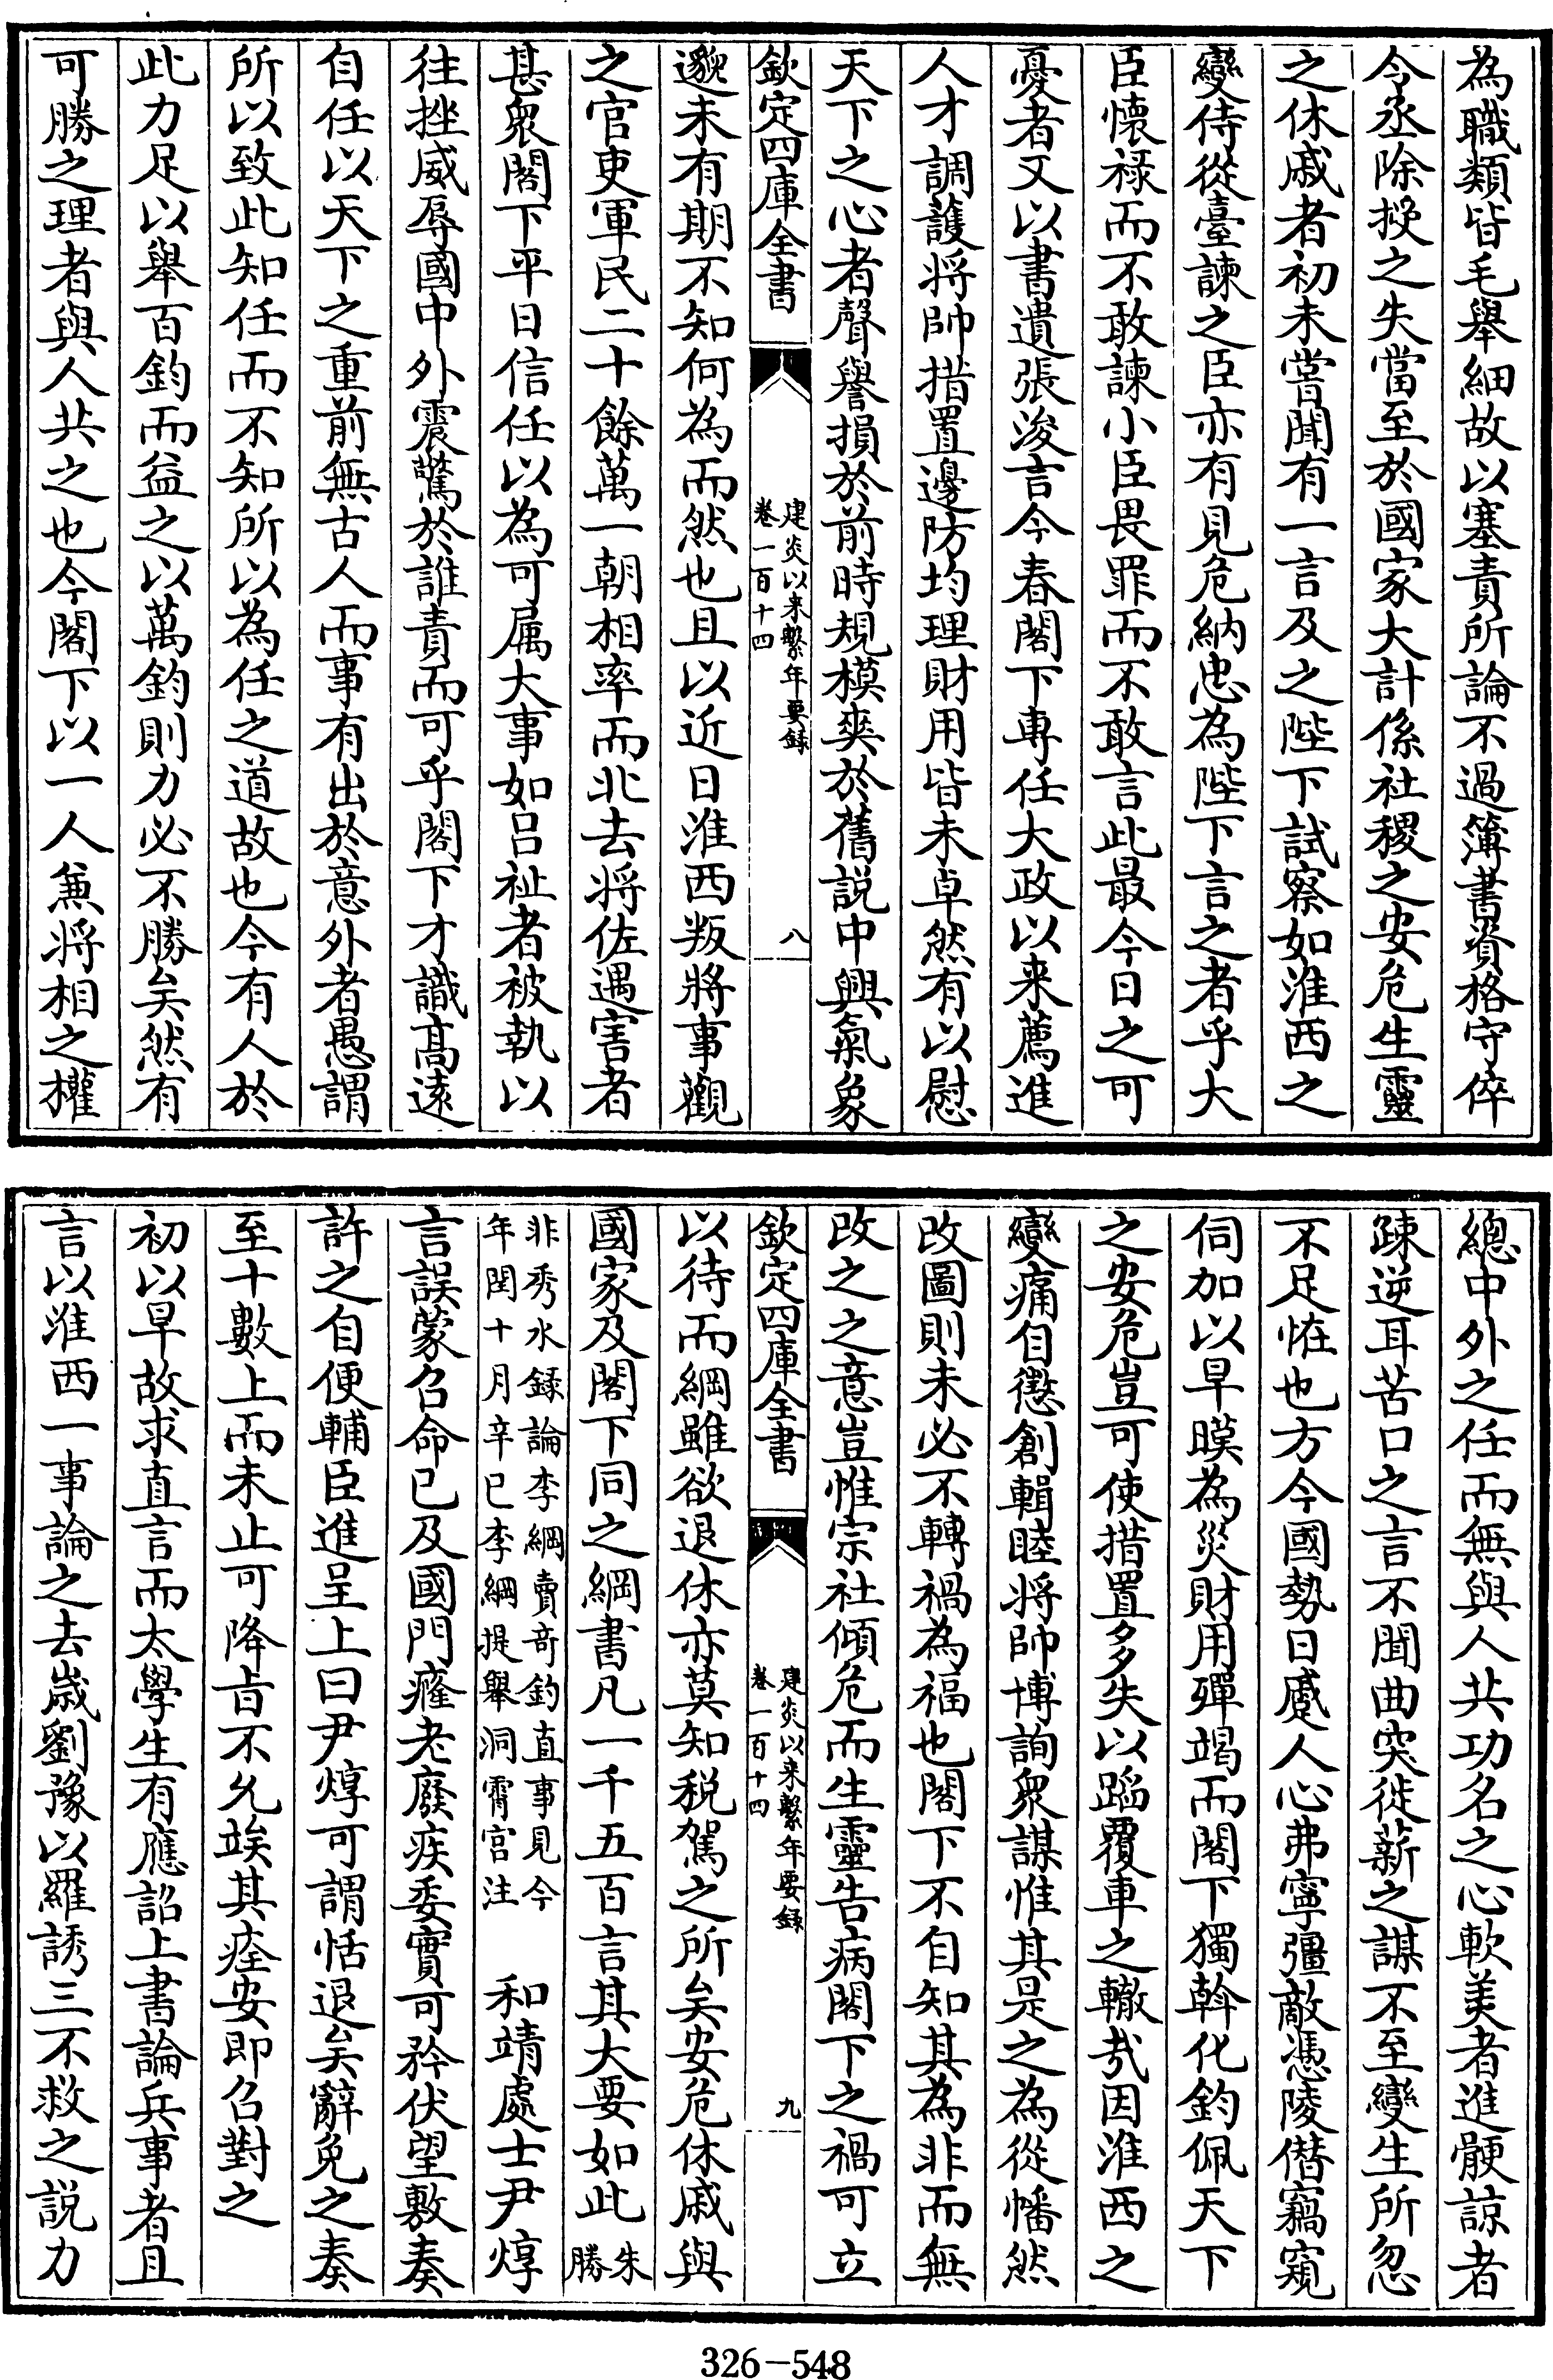 為職類皆毛舉細故以塞責所論不過簿書資格守倅
令丞除授之失當至於國家大計係社稷之安危生靈
之休戚者初未嘗聞有一言及之陛下試察如淮西之
變侍從臺諫之臣亦有見危納忠為陛下言之者乎大
臣懷禄而不敢諫小臣畏罪而不敢言此最今日之可
憂者又以書遺張浚言今春閣下専任大政以来薦進
人才調護將帥措置邊防均理財用皆未卓然有以慰
天下之心者聲譽損於前時規模爽於舊説中興氣象
欽定四庫全書
建炎以来繫年要錄
卷一百十四
八
邈未有期不知何為而然也且以近日淮西叛將事觀
之官吏軍民二十餘萬一朝相率而北去將佐遇害者
甚衆閣下平日信任以為可属大事如吕祉者被執以
往挫威辱國中外震驚於誰責而可乎閣下才識髙逺
自任以天下之重前無古人而事有出於意外者愚謂
所以致此知任而不知所以為任之道故也今有人於
此力足以舉百鈞而益之以萬鈞則力必不勝矣然有
可勝之理者與人共之也今閣下以一人兼將相之權
總中外之任而無與人共功名之心軟美者進骾諒者
疎逆耳苦口之言不聞曲突徙薪之謀不至變生所忽
不足恠也方今國勢日蹙人心弗寧彊敵憑陵僭竊窺
伺加以旱暵為災財用殫竭而閣下獨斡化鈞佩天下
之安危豈可使措置多失以蹈覆車之轍哉因淮西之
變痛自懲創輯睦將帥博詢衆謀惟其是之為從幡然
改圖則未必不轉禍為福也閣下不自知其為非而無
改之之意豈惟宗社傾危而生靈告病閣下之禍可立
欽定四庫全書
建炎以来繫年要錄
卷一百十四
九
以待而綱雖欲退休亦莫知税駕之所矣安危休戚與
國家及閣下同之綱書凡一千五百言其大要如此朱勝
非秀水録論李綱賣竒釣直事見今
年閏十月辛巳李綱提舉洞霄宫注
和靖處士尹焞
言誤蒙召命已及國門癃老廢疾委實可矜伏望敷奏
許之自便輔臣進呈上曰尹焞可謂恬退矣辭免之奏
至十數上而未止可降㫖不允竢其痊安即召對之
初以旱故求直言而太學生有應詔上書論兵事者且
言以淮西一事論之去歲劉豫以羅誘三不救之説力
326-548